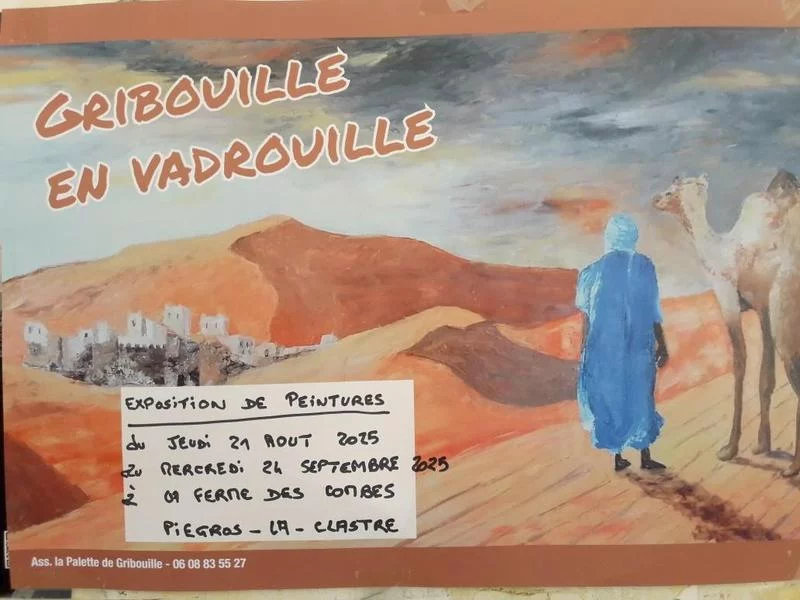 GRIBOUILLE
EN VADROUILLE
EXPOSITION DE PEINTURES
du JEUDI 21 AOUT 2025
au MERCREDI 24 SEPTEMBRE 2025
à LA FERME DES COMBES
PIEGROS - LA - CLASTRE
Ass. la Palette de Gribouille - 06 08 83 55 27